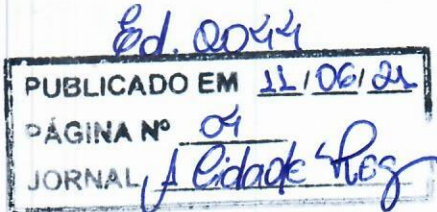 Ed. 2044
PUBLICADO EM 11/06/21
PÁGINA Nº 04
JORNAL A Cidade Reg